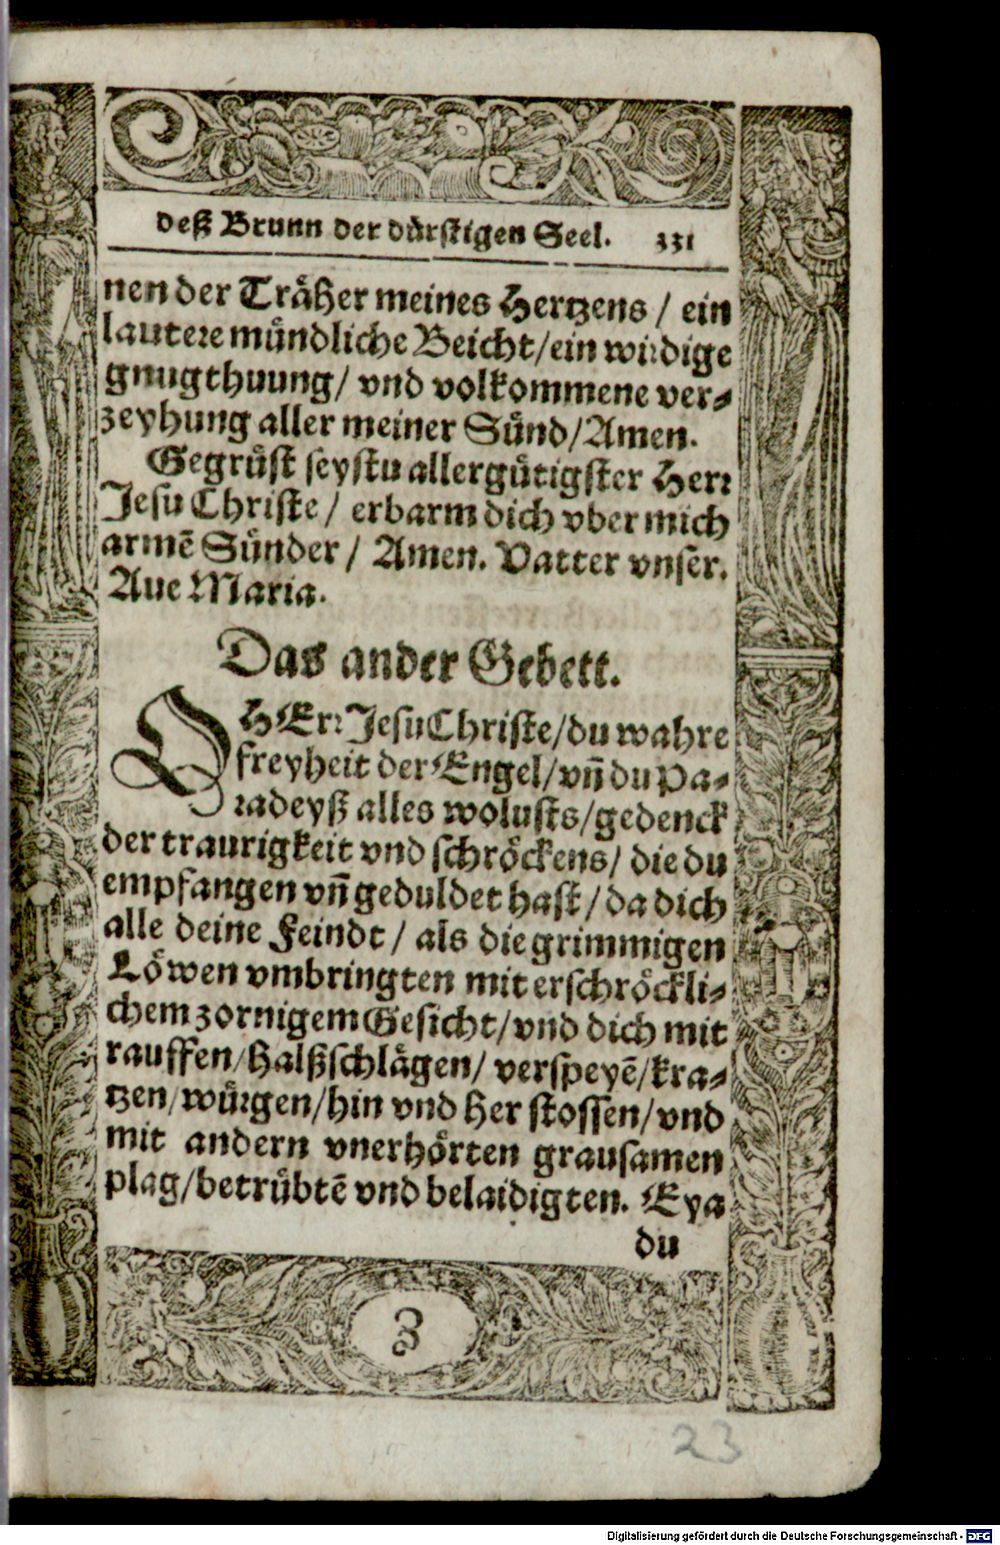 deß Brunn der dürstigen Seel. 331
nen der Träher meines Hertzens / ein
lautere mündliche Beicht/ein wirdige
gnugthuung/ vnd volkommene ver-
zeyhung aller meiner Sünd/Amen.
Gegrüst seystu allergütigster Herr
Jesu Christe / erbarm dich vber mich
armē Sünder / Amen. Vatter vnser.
Aue Maria.
Das ander Gebett.
O HErr Jesu Christe/du wahre
freyheit der Engel/vñ du Pa-
radeyß alles wolusts/gedenck
der traurigkeit vnd schröckens/ die du
empfangen vñ geduldet hast/da dich
alle deine Feindt / als die grimmigen
Löwen vmbringten mit erschröckli-
chem zornigem Gesicht/vnd dich mit
rauffen/Halßschlägen/ verspeyē/kra-
tzen/würgen/hin vnd her stossen/vnd
mit andern vnerhörten grausamen
plag/betrübtē vnd belaidigten. Eya
du
3
23
Digitalisierung gefördert durch die Deutsche Forschungsgemeinschaft - DFG